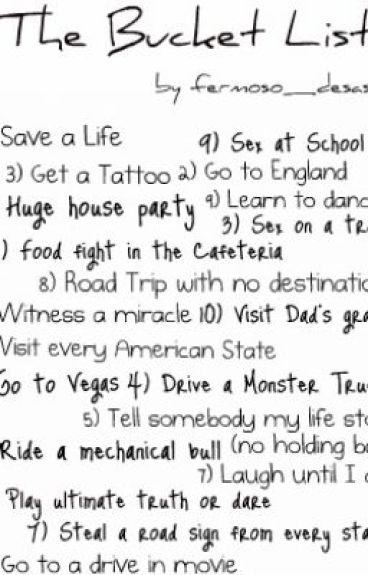 The Bucket List
by fermoso__desas
Save a Life 9) Sex at School
3) Get a Tattoo 2) Go to England
Huge house party 9) Learn to danc
3) Sex on a tr
) food fight in the Cafeteria
8) Road Trip with no destinatio
Witness a miracle 10) Visit Dad's gra
Visit every American State
Go to Vegas 4) Drive a Monster Tru
5) Tell somebody my life sto
Ride a mechanical bull (no holding ba
7) Laugh until I c
Play ultimate truth or dare
7) Steal a road sign from every sta
Go to a drive in movie